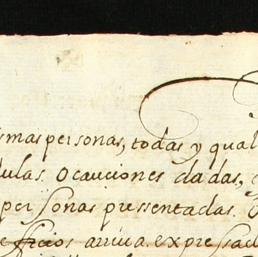 smas personas, todas y qual
dulas. O cauciones dadas,
personas pressentadas.
eficios arriua expressad